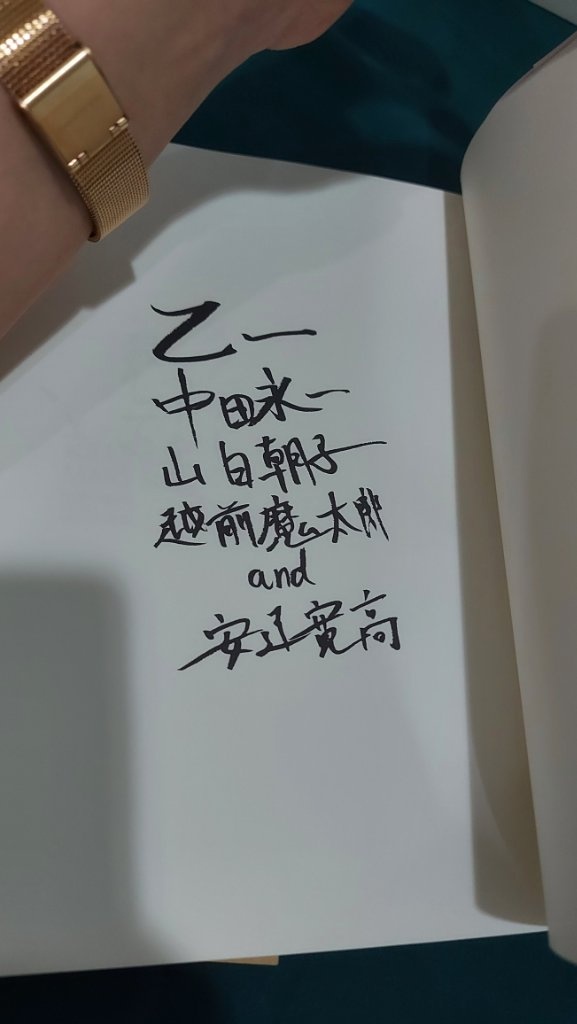 乙一
中田永一
山白朝子
越前魔太郎
and
安达寛高